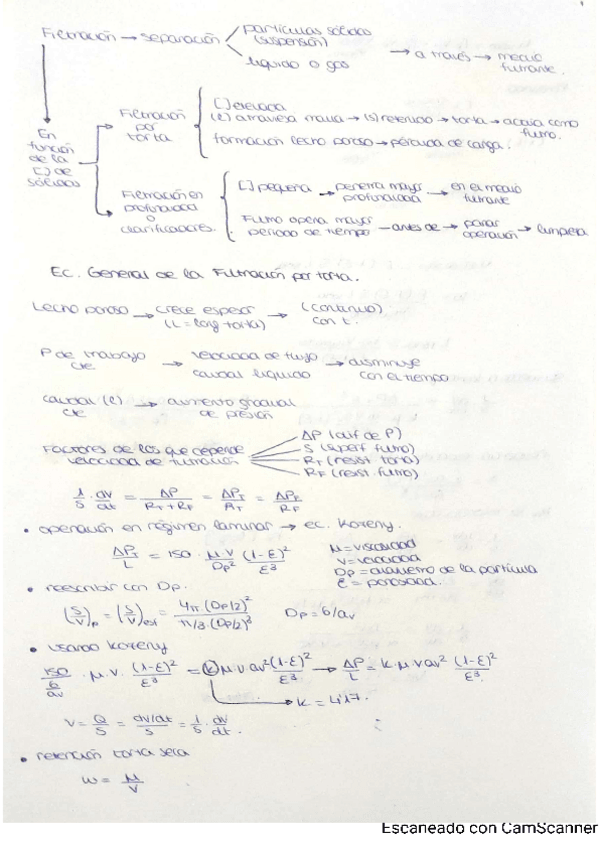 Filtración → separación partículas sólidas
(suspensión)
líquido o gas
→ a través → medio
filtrante.
En
función
de la
[] de
sólidos
Filtración
por
torta
[] elevada
(l) atraviesa malla → (s) retenido → torta → actúa como
filtro.
formación lecho poroso → pérdida de carga.
Filtración en
profundidad
o
clarificadores.
[] pequeña → penetra mayor
profundidad → en el medio
filtrante
Filtro opera mayor
periodo de tiempo - antes de → parar
operación → limpieza
Ec. General de la Filtración por torta.
Lecho poroso → crece espesor
(L = long torta) → (continuo)
con t.
P de trabajo
cte → velocidad de flujo
caudal líquido → disminuye
con el tiempo
caudal (l)
cte → aumento gradual
de presión
Factores de los que depende
velocidad de filtración
ΔP (dif de P)
S (superf filtro)
RT (resist torta)
RF (resist. filtro)
1/S · dV/dt = ΔP/(RT + RF) = ΔPT/RT = ΔPF/RF
• operación en régimen laminar → ec. Kozeny.
ΔPT/L = 150 · μ·v/Dp² (1-ε)²/ε³
μ = viscosidad
v = velocidad
Dp = diámetro de la partícula
ε = porosidad.
• reescribir con Dp.
(S/V)p = (S/V)esf = 4π·(Dp/2)²/π/3·(Dp/2)³ Dp = 6/av
• usando Kozeny
150/6/av · μ·v· (1-ε)²/ε³ = k μ·v av² (1-ε)²/ε³ → ΔP/L = k·μ·v av² (1-ε)²/ε³
→ k = 4'17.
v = Q/S = dV/dt/S = 1/S · dV/dt.
• retención torta seca
w = M/V
Escaneado con CamScanner